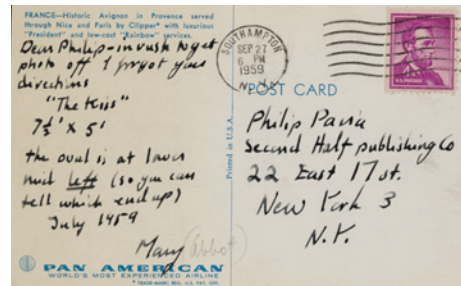 FRANCE—Historic Avignon in Provence served
through Nice and Paris by Clipper* with luxurious
"President" and low-cost "Rainbow" services.
Dear Philip – in rush to get
photo off I forgot your
directions
"The Kiss"
7½' x 5'
the oval is at lower
mid left (so you can
tell which end up)
July 1959
Mary (Abbott)
PAN AMERICAN
WORLD'S MOST EXPERIENCED AIRLINE
* TRADE-MARK, REG. U.S. PAT. OFF.
Printed in U.S.A.
SOUTHAMPTON
SEP 27
6 PM
1959
N.Y.
POST CARD
Philip Pavia
Second Half publishing Co
22 East 17 st.
New York 3
N.Y.